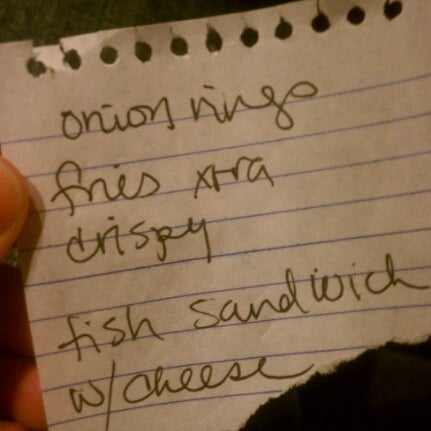 onion rings
fries xtra
crispy
fish sandwich
w/cheese